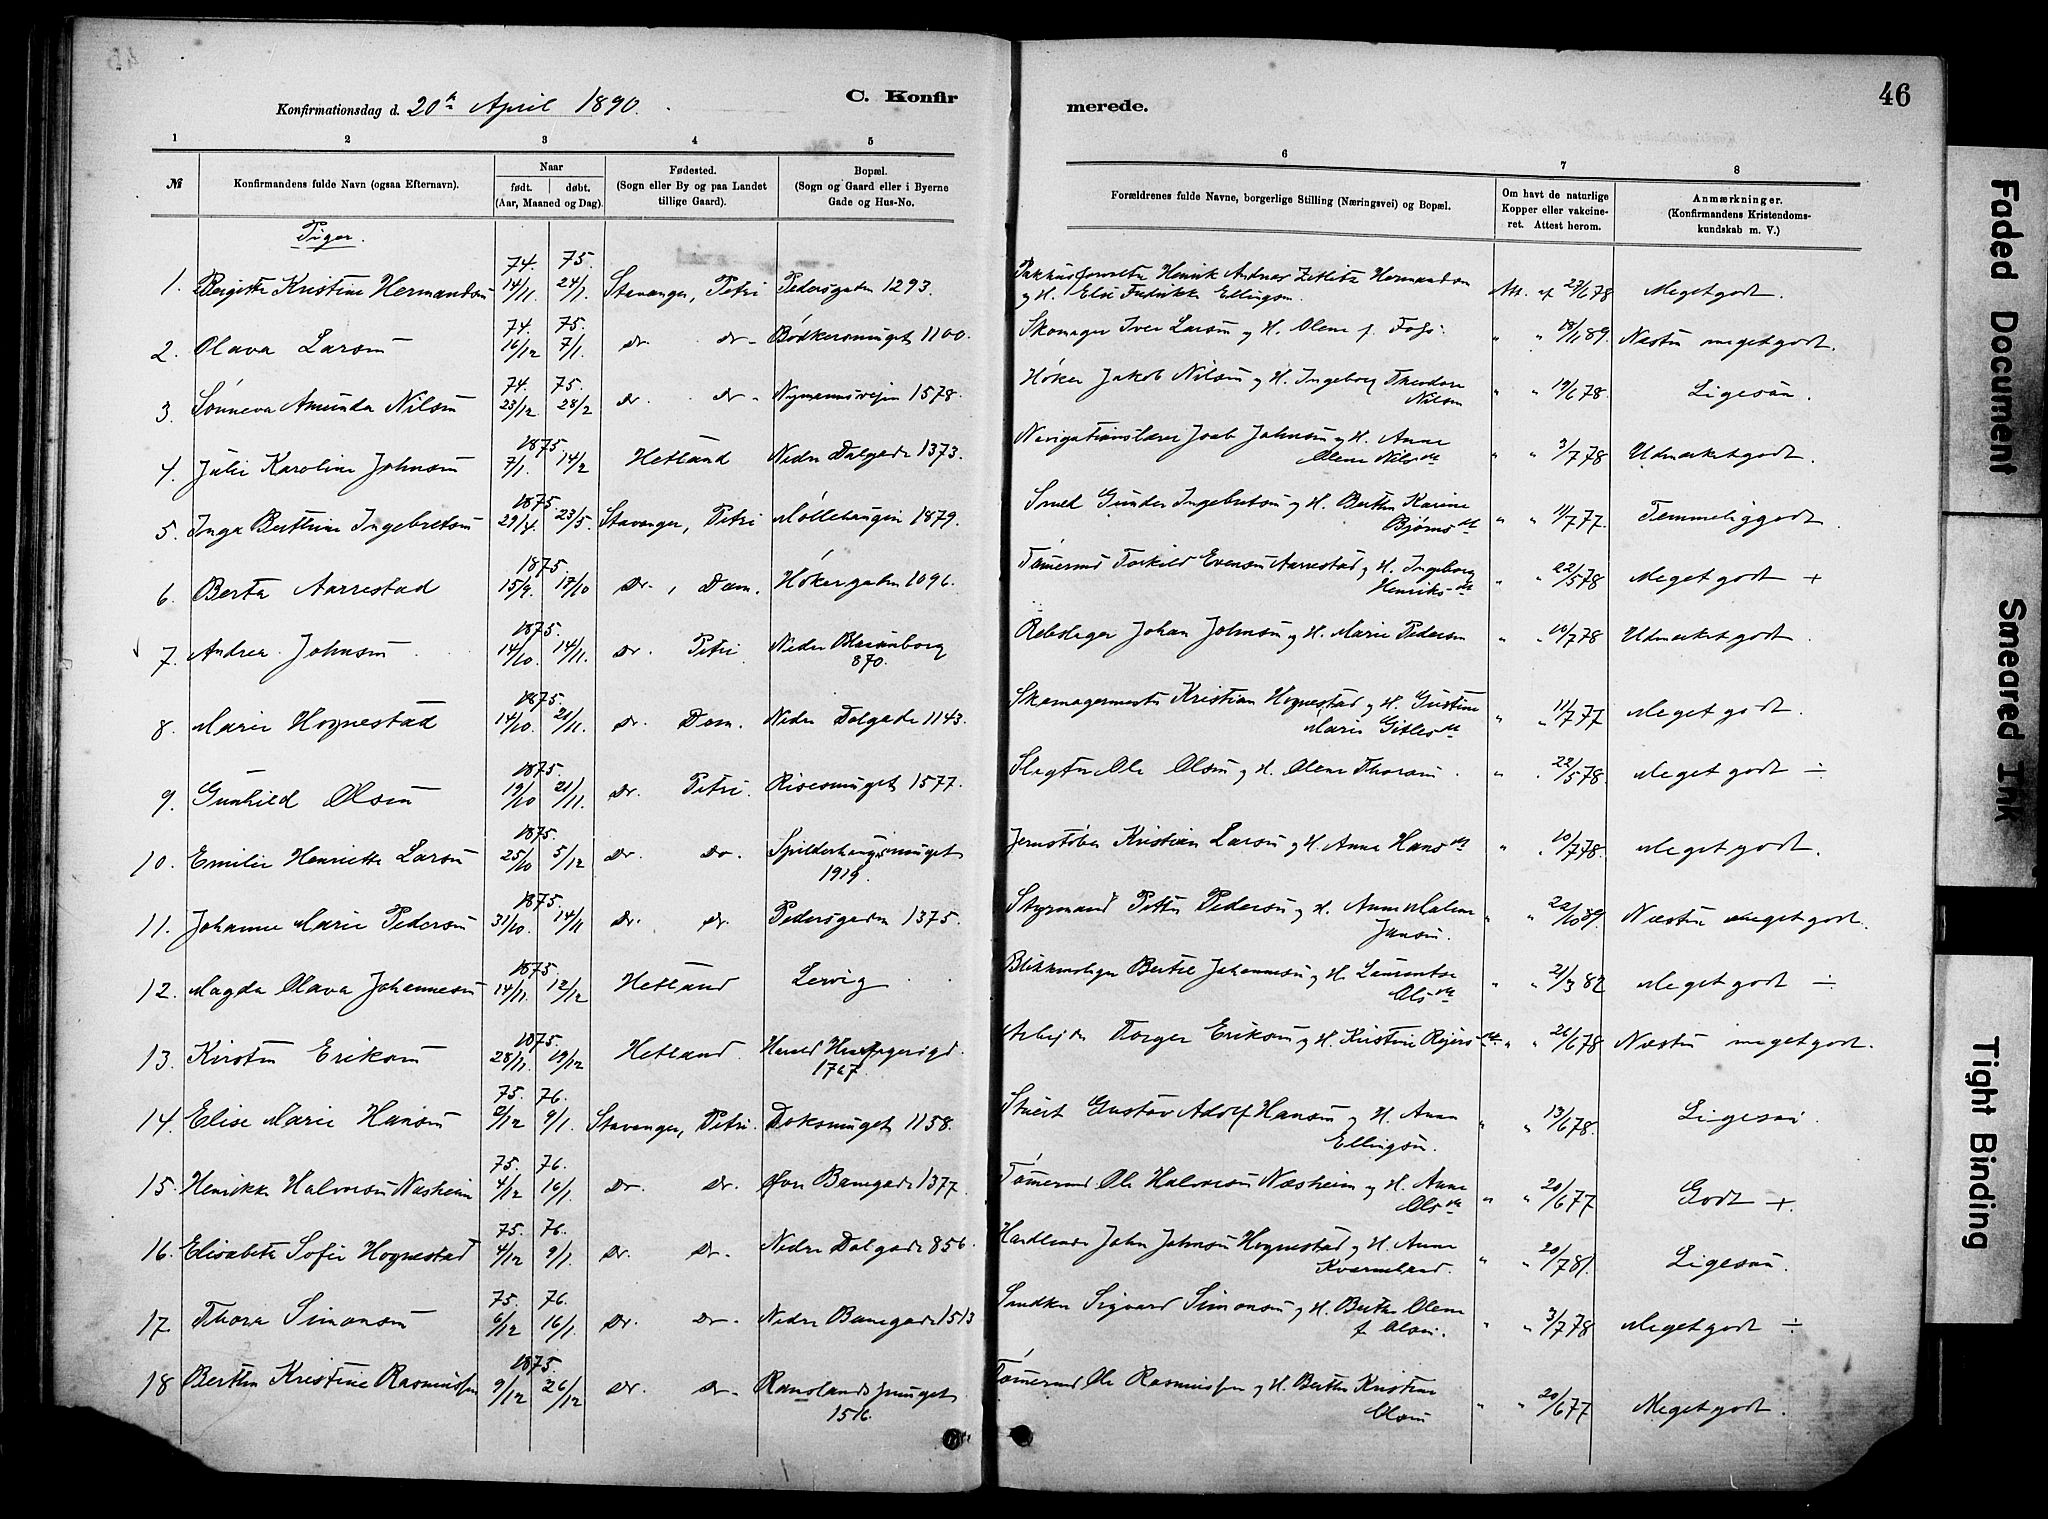 46
Konfirmationsdag d. 20de April 1890.
C. Konfirmerede.
1 2 3 4 5 6 7 8
№
Konfirmandens fulde Navn (ogsaa Efternavn).
Naar
født. døbt.
(Aar, Maaned og Dag).
Fødested.
(Sogn eller By og paa Landet
tillige Gaard).
Bopæl.
(Sogn og Gaard eller i Byerne
Gade og Hus-No.
Forældrenes fulde Navne, borgerlige Stilling (Næringsvei) og Bopæl.
Om havt de naturlige
Kopper eller vakcine-
ret. Attest herom.
Anmærkninger.
(Konfirmandens Kristendoms-
kundskab m. V.)
Piger.
1. Bergitte Kristine Hermansen 74. 14/11. 75. 24/1. Stavanger, Petri Pedersgaden 1293. Henrik Andreas Zetlitz Hermansen
og H. Else Fredrikke Ellingsen. Att. af 27/6 78 Meget godt.
2. Olava Larsen 74. 16/12 75. 7/1. Do. do. Bødkersmuget 1100. Skomager Iver Larsen og H. Olene f. Foss. " " 18/11 89. Næsten meget godt.
3. Sønneva Amunda Nilsen 74. 23/12. 75. 28/2 do. do. Nymannsveien 1578. Høker Jakob Nilsen og H. Ingeborg Theodora
Nilsen " " 19/6 78. Ligesaa.
4. Julie Karoline Johnsen 1875. 7/1. 14/2 Hetland Nedre Dalgade 1373. Navigationslærer Joab Johnsen og H. Anne
Olene Nilsdt " " 3/7 78 Udmærket godt.
5. Inga Bertine Ingebretsen 1875. 29/4. 23/5. Stavanger, Petri Møllehaugen 1879. Smed Gunder Ingebretsen og H. Berthe Karine
Bjørnsdt " " 11/7 77. Temmelig godt.
6. Berta Aarrestad 1875. 15/9. 17/10 Do., Dom. Høkergaden 1096. Tømermd Torkild Evensen Aarrestad og H. Ingeborg
Henriksdt " " 22/5 78 Meget godt +
7. Andrea Johnsen 1875. 14/10. 14/11. Do. Petri Nedre Blaasenborg
870. Rebslager Johan Johnsen og H. Marie Pedersen " " 10/7 78 Udmærket godt.
8. Marie Hognestad 1875. 14/10. 21/11. Do. Dom. Nedre Dalgade 1143. Skomagermester Kristian Hognestad og H. Gustine
Marie Gitlesdt " " 11/7 77 Meget godt.
9. Gunhild Olsen 1875. 19/10 21/11. Do. Petri. Risesmuget 1577. Slagter Ole Olsen og H. Olene Thorsen. " " 22/5 78. Meget godt ÷
10. Emilie Henriette Larsen 1875. 25/10 5/12 Do. Do. Spilderhaugsmuget
1919. Jernstøber Kristian Larsen og H. Anne Hansdt " " 10/7 78. Meget godt.
11. Johanne Marie Pedersen 1875. 31/10. 14/11 Do. do. Pedersgaden 1375. Styrmand Petter Pedersen og H. Anne Malene
Jansen. " " 22/10 89. Næsten meget godt.
12. Magda Olava Johannesen 1875. 14/11. 12/12 Hetland Lervig Blikkenslager Bertel Johannesen og H. Laurentse
Olsdt " " 21/3 82 Meget godt ÷
13. Kirsten Eriksen 1875. 28/11. 19/12 Hetland. Harald Haarfagersgd.
1767. Arbejder Torger Eriksen og H. Kristine Rejersdt " " 21/6 78 Næsten meget godt.
14. Elise Marie Hansen 75. 2/12 76. 9/1. Stavanger, Petri. Doksmuget 1158. Stuert Gustav Adolf Hansen og H. Anna
Ellingsen. " " 13/6 78. Ligesaa.
15. Henrikke Halvorsen Næsheim 75. 4/12 76. 16/1. Do. Do. Øvre Banegade 1377. Tømermd Ole Halvorsen Næsheim og H. Anne
Olsdt " " 20/6 77 Godt +.
16. Elisabeth Sofie Hognestad 75. 4/12 76. 9/1. Do. Do. Nedre Dalgade 856. Handlende John Johnsen Hognestad og H. Anne
Kværneland. " " 20/7 81. Ligesaa.
17. Thora Simonsen 75. 6/12 76. 16/1. Do. Do. Nedre Banegade 1513 Snedker Sigvard Simonsen og H. Berthe Olene
f. Olsen. " " 3/7 78 Meget godt ÷
18 Berthe Kristine Rasmussen 1875. 9/12 26/12 Do. Do. Ramslandsmuget
1516. Tømermd Ole Rasmussen og H. Berthe Kristine
Olsen " " 20/6 77 Meget godt.
Faded Document
Smeared Ink
Tight Binding